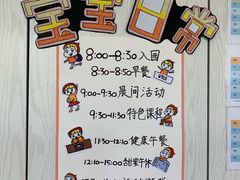 宝宝日常
8:00-8:30入园
8:30-8:50早餐
9:00-9:30晨间活动
9:30-11:30特色课程
11:30-12:10健康午餐
12:10-15:00甜蜜午休